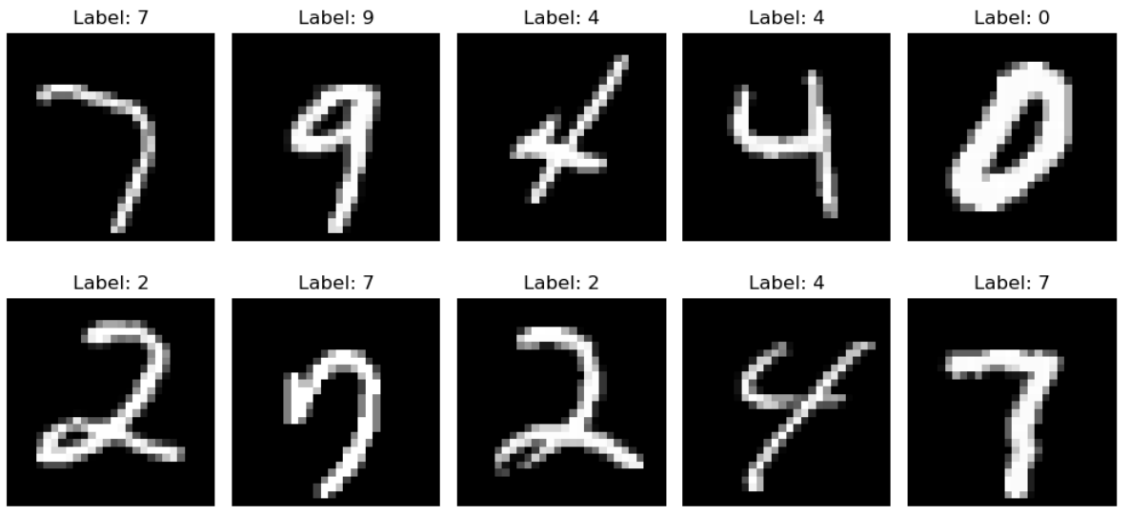 Label: 7 Label: 9 Label: 4 Label: 4 Label: 0
7 9 4 4 0
Label: 2 Label: 7 Label: 2 Label: 4 Label: 7
2 7 2 4 7